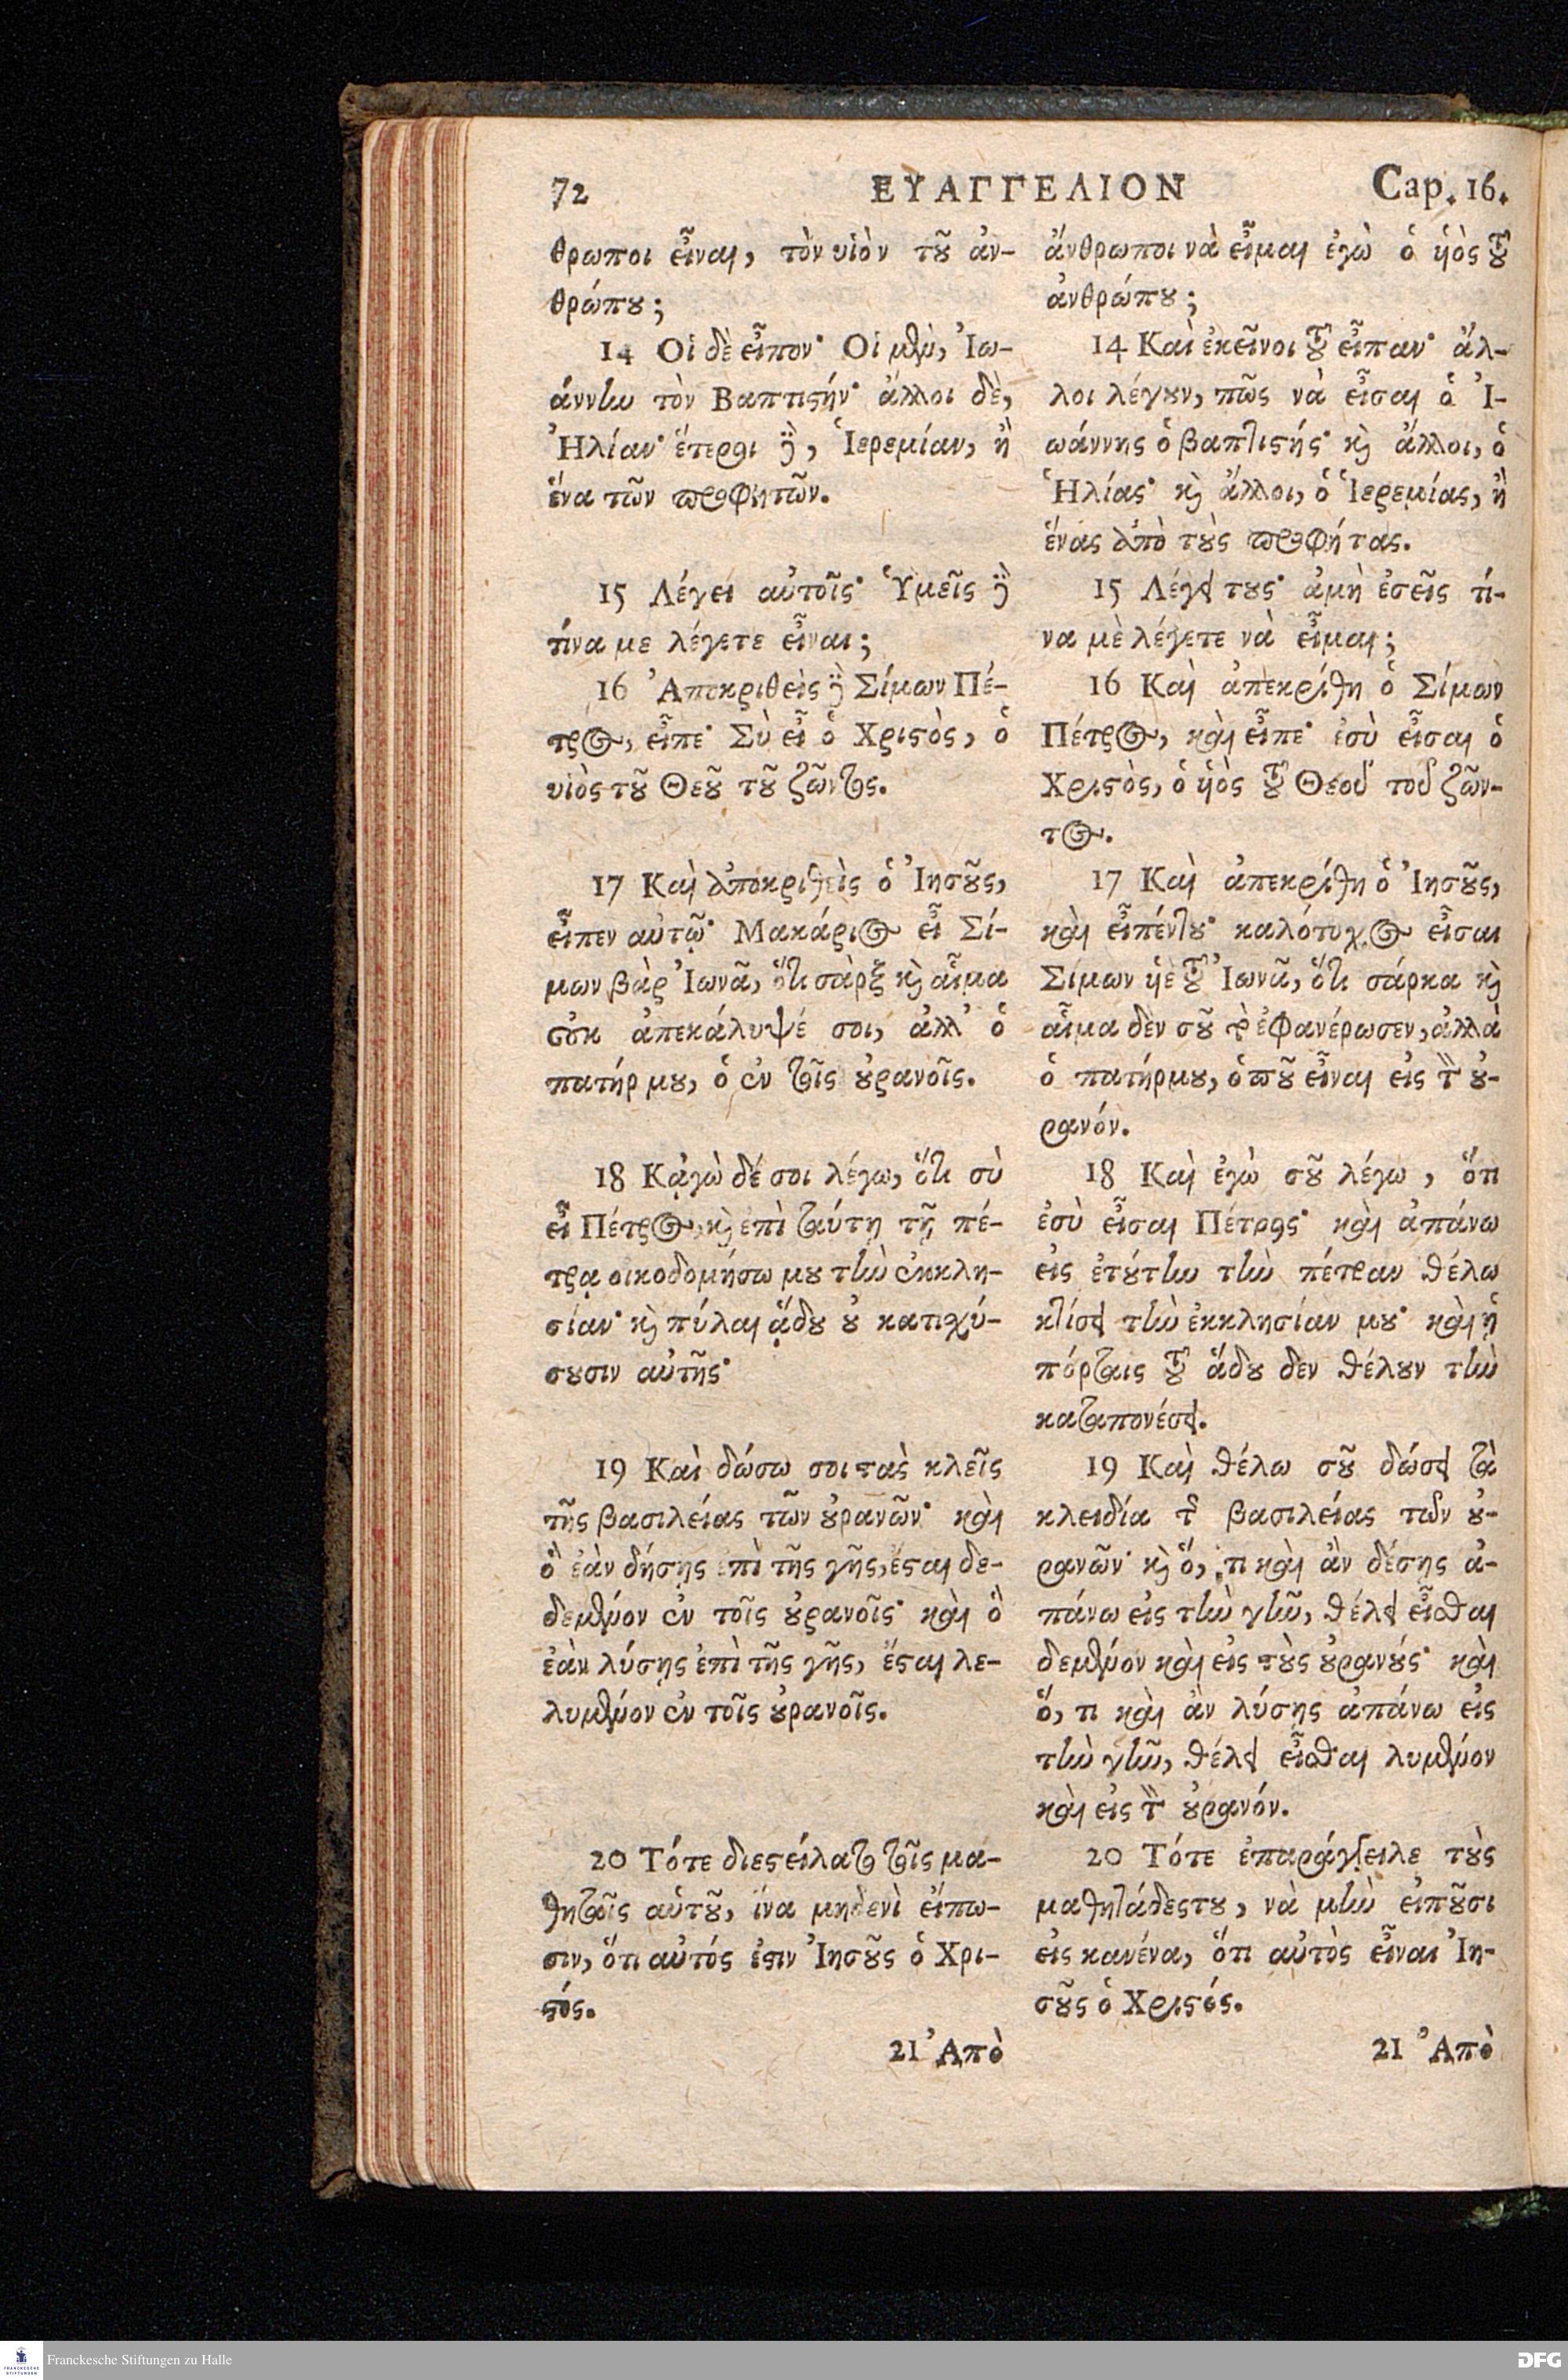 72 ΕΥΑΓΓΕΛΙΟΝ Cap. 16.
θρωποι εἶναι, τὸν υἱὸν τȣ͂ ἀν-
θρώπȣ;
14 Οἱ δὲ εἶπον· Οἱ μὲν, Ἰω-
άννην τὸν Βαπτιϛήν· ἄλλοι δὲ,
Ἠλίαν· ἕτεροι δὲ, Ἱερεμίαν, ἢ
ἕνα τῶν προφητῶν.
15 Λέγει αὐτοῖς· Ὑμεῖς δὲ
τίνα με λέγετε εἶναι;
16 Ἀποκριθεὶς δὲ Σίμων Πέ-
τρος, εἶπε· Σὺ εἶ ὁ Χριϛὸς, ὁ
υἱὸς τȣ͂ Θεȣ͂ τȣ͂ ζῶντος.
17 Καὶ ἀποκριθεὶς ὁ Ἰησȣ͂ς,
εἶπεν αὐτῷ· Μακάριος εἶ Σί-
μων βὰρ Ἰωνᾶ, ὅτι σὰρξ κϳ αἷμα
οὐκ ἀπεκάλυψέ σοι, ἀλλ' ὁ
πατήρ μȣ, ὁ ἐν τοῖς ȣ̓ρανοῖς.
18 Κᾀγὼ δέ σοι λέγω, ὅτι σὺ
εἶ Πέτρος, κϳ ἐπὶ ταύτῃ τῇ πέ-
τρᾳ οἰκοδομήσω μȣ τὴν ἐκκλη-
σίαν· κϳ πύλαι ᾅδȣ ȣ̓ κατιχύ-
σȣσιν αὐτῆς·
19 Καὶ δώσω σοι τὰς κλεῖς
τῆς βασιλείας τῶν ȣ̓ρανῶν· καὶ
ὃ ἐὰν δήσῃς ἐπὶ τῆς γῆς, ἔϛαι δε-
δεμένον ἐν τοῖς ȣ̓ρανοῖς· καὶ ὃ
ἐὰν λύσῃς ἐπὶ τῆς γῆς, ἔϛαι λε-
λυμένον ἐν τοῖς ȣ̓ρανοῖς.
20 Τότε διεϛείλατο τοῖς μα-
θηταῖς αὑτȣ͂, ἵνα μηδενὶ εἴπω-
σιν, ὅτι αὐτός ἐϛιν Ἰησȣ͂ς ὁ Χρι-
ϛός.
21 Ἀπὸ
ἄνθρωποι νὰ εἶμαι ἐγὼ ὁ ὑιὸς τȣ͂
ἀνθρώπȣ;
14 Καὶ ἐκεῖνοι τȣ͂ εἶπαν· ἄλ-
λοι λέγȣν, πῶς νὰ εἶσαι ὁ Ἰ-
ωάννης ὁ βαπτιϛής· κϳ ἄλλοι, ὁ
Ἡλίας· κϳ ἄλλοι, ὁ Ἱερεμίας, ἢ
ἕνας ἀπὸ τȣς προφήτας.
15 Λέγει τȣς· ἀμὴ ἐσεῖς τί-
να μὲ λέγετε νὰ εἶμαι;
16 Καὶ ἀπεκρίθη ὁ Σίμων
Πέτρος, καὶ εἶπε· ἐσὺ εἶσαι ὁ
Χριϛὸς, ὁ ὑιὸς τȣ͂ Θεοῦ τοῦ ζῶν-
τος.
17 Καὶ ἀπεκρίθη ὁ Ἰησȣ͂ς,
καὶ εἶπέντȣ· καλότυχος εἶσαι
Σίμων ὑιὲ τȣ͂ Ἰωνᾶ, ὅτι σάρκα κϳ
αἷμα δὲν σȣ͂ τὸ ἐφανέρωσεν, ἀλλὰ
ὁ πατήρμȣ, ὁπȣ͂ εἶναι εἰς τὸν ȣ̓-
ρανόν.
18 Καὶ ἐγὼ σȣ͂ λέγω, ὅτι
ἐσὺ εἶσαι Πέτρος· καὶ ἀπάνω
εἰς ἐτȣ́την τὴν πέτραν θέλω
κτίσει τὴν ἐκκλησίαν μȣ· καὶ ἡ
πόρταις τȣ͂ ἅδȣ δεν θέλȣν τὴν
καταπονέσει.
19 Καὶ θέλω σȣ͂ δώσει τὰ
κλειδία τῆς βασιλείας τῶν ȣ̓-
ρανῶν· κϳ ὅ, τι καὶ ἂν δέσῃς ἀ-
πάνω εἰς τὴν γῆν, θέλει εἶσθαι
δεμένον καὶ εἰς τȣ̀ς ȣ̓ρανȣ́ς· καὶ
ὅ, τι καὶ ἂν λύσῃς ἀπάνω εἰς
τὴν γῆν, θέλει εἶσθαι λυμένον
καὶ εἰς τὸν ȣ̓ρανόν.
20 Τότε ἐπαράγγειλε τȣ̀ς
μαθητάδεςτȣ, νὰ μὴν εἰπȣ͂σι
εἰς κανένα, ὅτι αὐτὸς εἶναι Ἰη-
σȣ͂ς ὁ Χριϛός.
21 Ἀπὸ
FRANCKESCHE STIFTUNGEN
Franckesche Stiftungen zu Halle
DFG